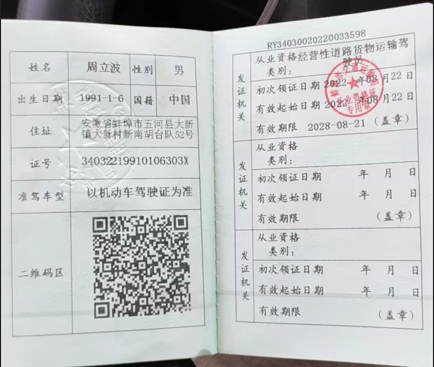 姓名 周立波 性别 男
出生日期 1991-1-6 国籍 中国
住址 安徽省蚌埠市五河县大新
镇大新村新南胡台队52号
证号 34032219910106303X
准驾车型 以机动车驾驶证为准
二维码区
RY34030020220033598
发证机关
从业资格 经营性道路货物运输驾
类别: 驶员
初次领证日期 2022年08月22日
有效起始日期 2022年08月22日
有效期限 2028-08-21 (盖章)
发证机关
从业资格
类别:
初次领证日期 年 月 日
有效起始日期 年 月 日
有效期限 (盖章)
发证机关
从业资格
类别:
初次领证日期 年 月 日
有效起始日期 年 月 日
有效期限 (盖章)